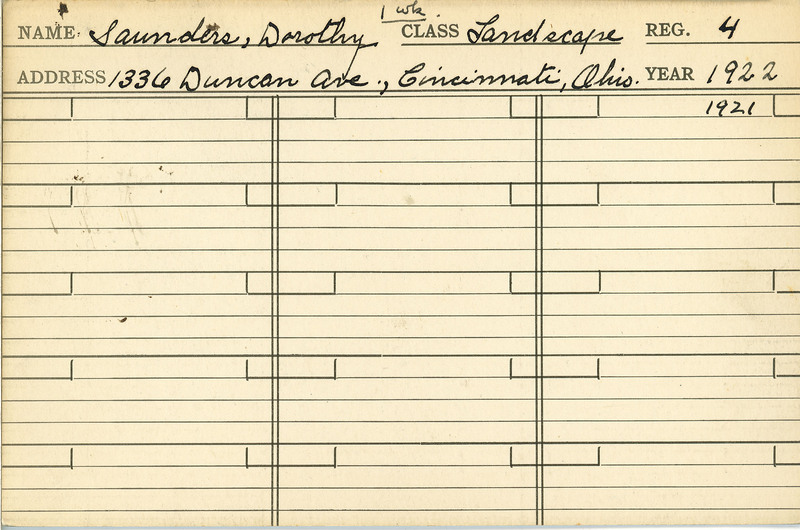 1 wk
NAME. Saunders, Dorothy CLASS Landscape REG. 4
ADDRESS 1336 Duncan Ave., Cincinnati, Ohio. YEAR 1922
1921